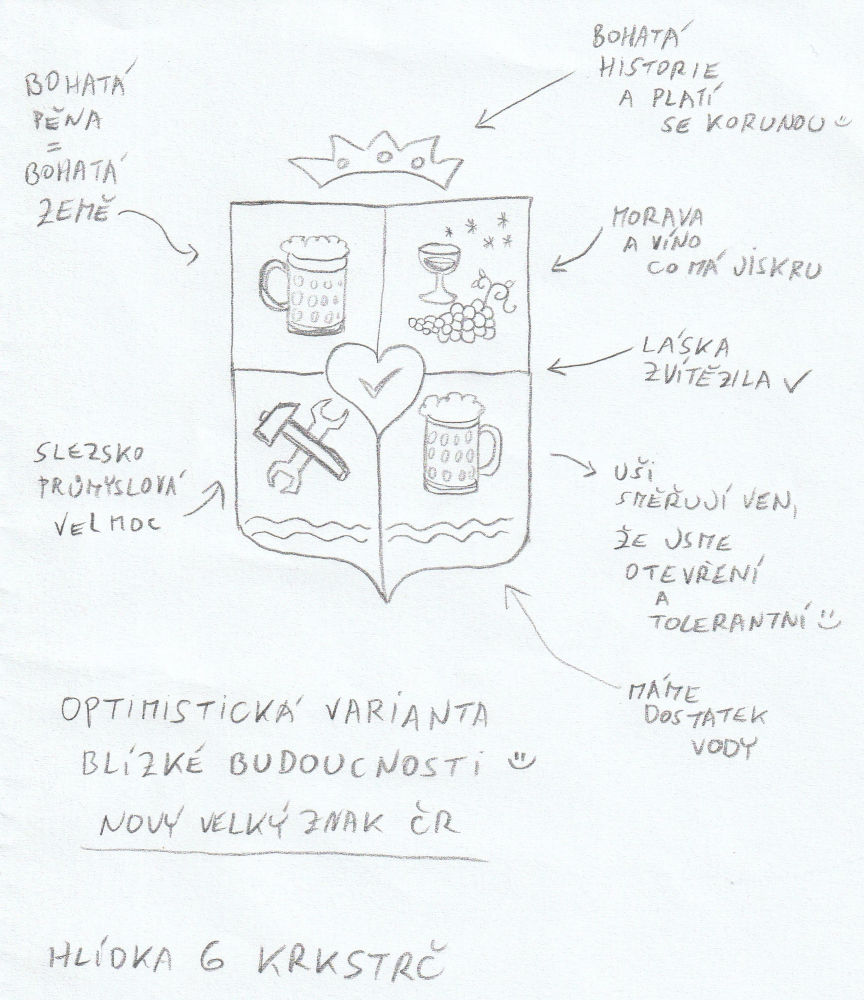 BOHATÁ
HISTORIE
A PLATÍ
SE KORUNOU
BOHATÁ
PĚNA
=
BOHATÁ
ZEMĚ
MORAVA
A VÍNO
CO MÁ JISKRU
LÁSKA
ZVÍTĚZILA ✓
SLEZSKO
PRŮMYSLOVÁ
VELMOC
UŠI
SMĚŘUJÍ VEN,
ŽE JSME
OTEVŘENÍ
A
TOLERANTNÍ
MÁME
DOSTATEK
VODY
OPTIMISTICKÁ VARIANTA
BLÍZKÉ BUDOUCNOSTI
NOVÝ VELKÝ ZNAK ČR
HLÍDKA 6 KRKSTRČ